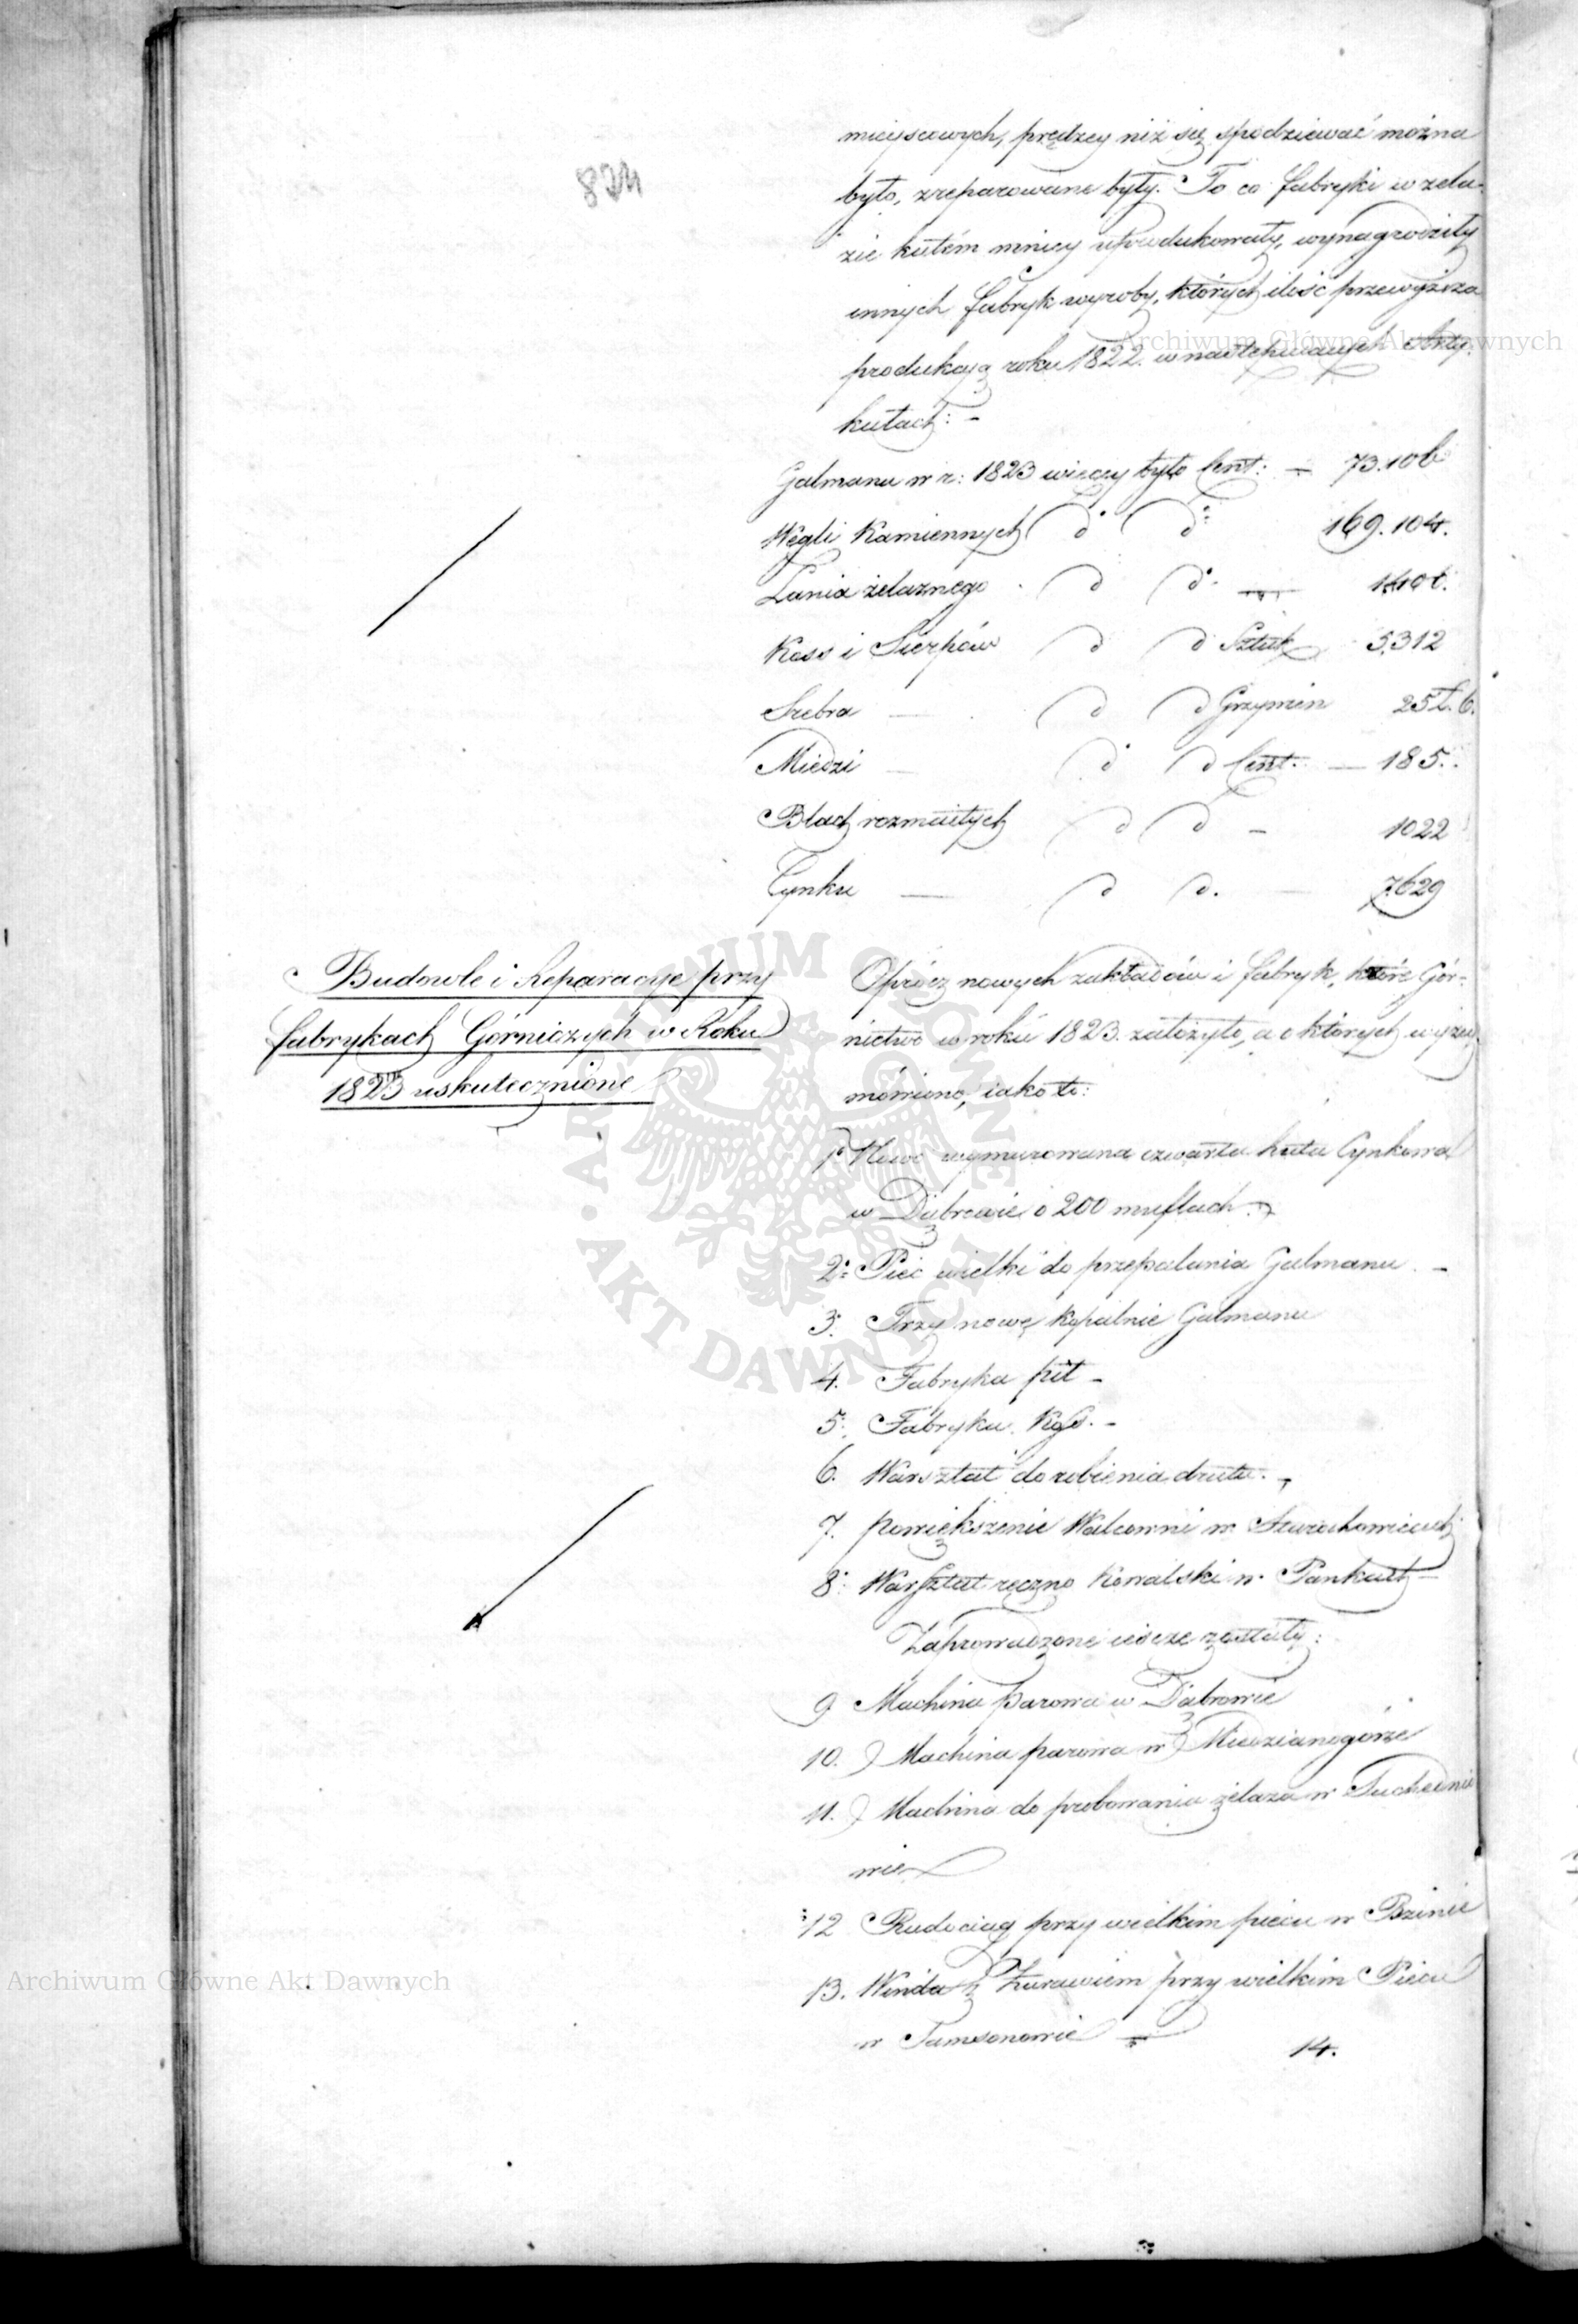 mieyscowych, prędzey niż się spodziewać można
było, zreparowane były. To co fabryki w żela-
zie kutém mniey uprodukowały, wynagrodziły
innych fabryk wyroby, których ilość przewyższa
produkcyą roku 1822. w następuiących Arty-
kułach: -
Galmanu w r: 1823 więcey było Cent: - 73.106
Węgli Kamiennych d° d° 169.104.
Lania żelaznego d d°
Koss i Sierpów d d Sztuk 5,312
Srebra d d Grzywien
Miedzi d° d Cent. - 185.
Blach rozmaitych d d - 1022
Cynku d d. 7629
Budowle i Reparacye przy
fabrykach Górniczych w Roku
1823 uskutecznione
Oprócz nowych zakładów i fabryk, które Gór-
nictwo w roku 1823. założyło, a o których wyżey
mówiono, iako to:
1° Nowo wymurowana czwarta huta Cynkowa
w Dąbrowie o 200 muflach.
2° Piec wielki do przepalania Galmanu. -
3. Trzy nowe kopalnie Galmanu
4. Fabryka pił -
5. Fabryka Kos. -
6. Warsztat do robienia drutu. -
7. powiększenie Walcowni w Starachowicach
8. Warsztat ręczno Kowalski w Pankach -
Zaprowadzone ieszcze zostały:
9 Machina parowa w Dąbrowie
10. Machina parowa w Miedzianogórze
11. Machina do probowania żelaza w Suchednio
wie
12 Rudociąg przy wielkim piecu w Bzinie
13. Winda z Żurawiem przy wielkim Piecu
w Samsonowie
14.
Archiwum Główne Akt Dawnych
ARCHIWUM GŁÓWNE • AKT DAWNYCH •
Archiwum Główne Akt Dawnych